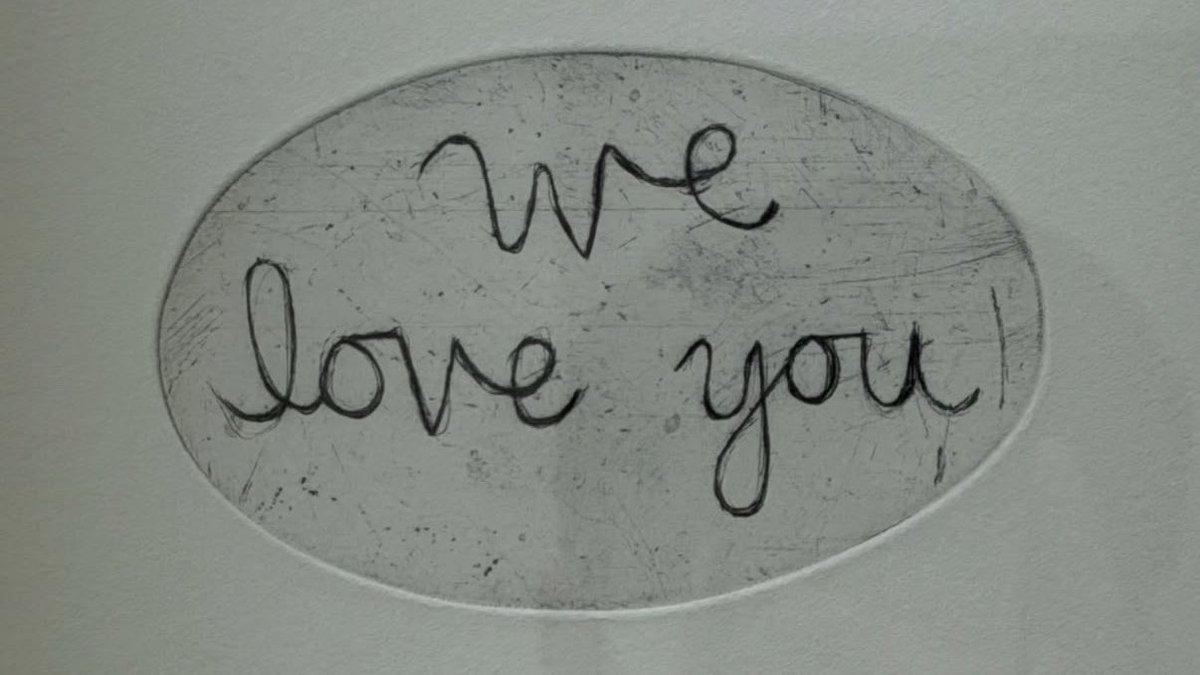 we
love you